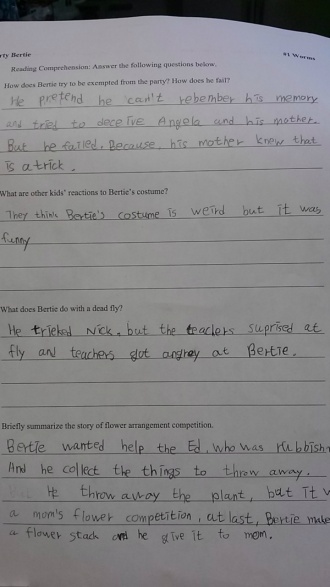 rty Bertie
#1 Worms
Reading Comprehension: Answer the following questions below.
How does Bertie try to be exempted from the party? How does he fail?
He pretend he can't rebember his memory
and tried to deceive Angela and his mother.
But he failed. Because his mother knew that
is a trick.
What are other kids' reactions to Bertie's costume?
They think Bertie's costume is weird but it was
funny
What does Bertie do with a dead fly?
He tricked Nick, but the teaclers suprised at
fly and teachers got angrey at Bertie.
Briefly summarize the story of flower arrangement competition.
Bertie wanted help the Ed, who was rubbish
And he collect the things to throw away.
He throw away the plant, but it
a mom's flower competition, at last, Bertie make
a flower stack and he give it to mom.